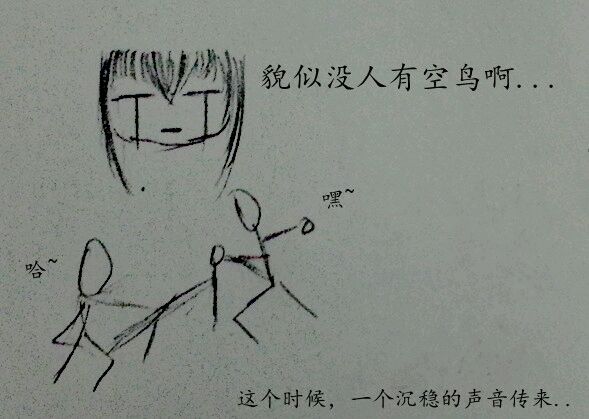 貌似没人有空鸟啊...
嘿~
哈~
这个时候，一个沉稳的声音传来..